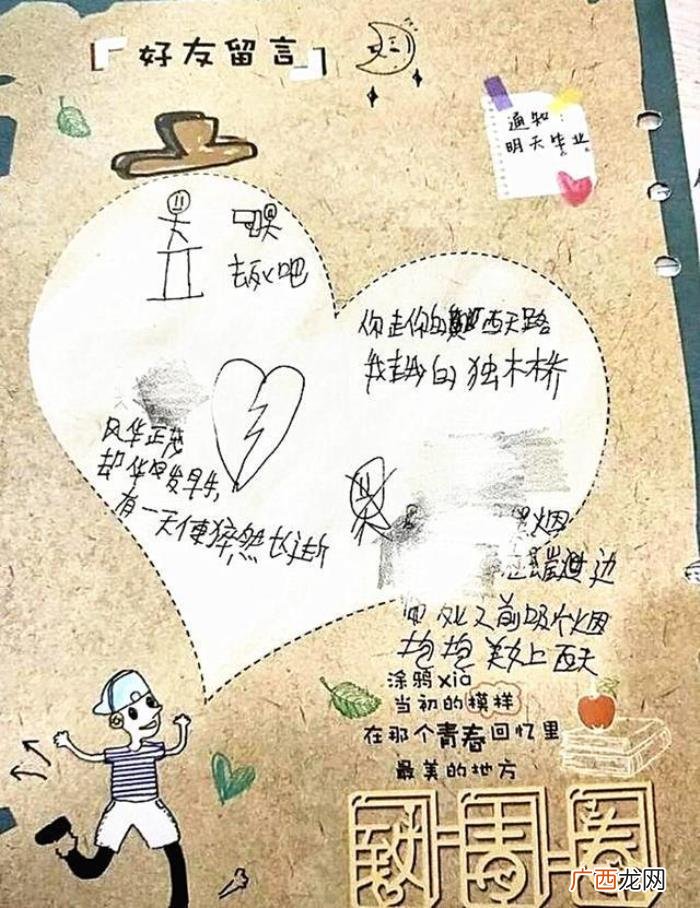 好友留言
通知:
明天毕业
去死吧
你走你的 西天路
我走我的独木桥
风华正茂
却华发早生,
有一天便猝然长逝
烟
边
死之前吸个烟
抱抱美女上西天
涂鸦xià
当初的模样
在那个青春回忆里
最美的地方
致青春
广西龙网